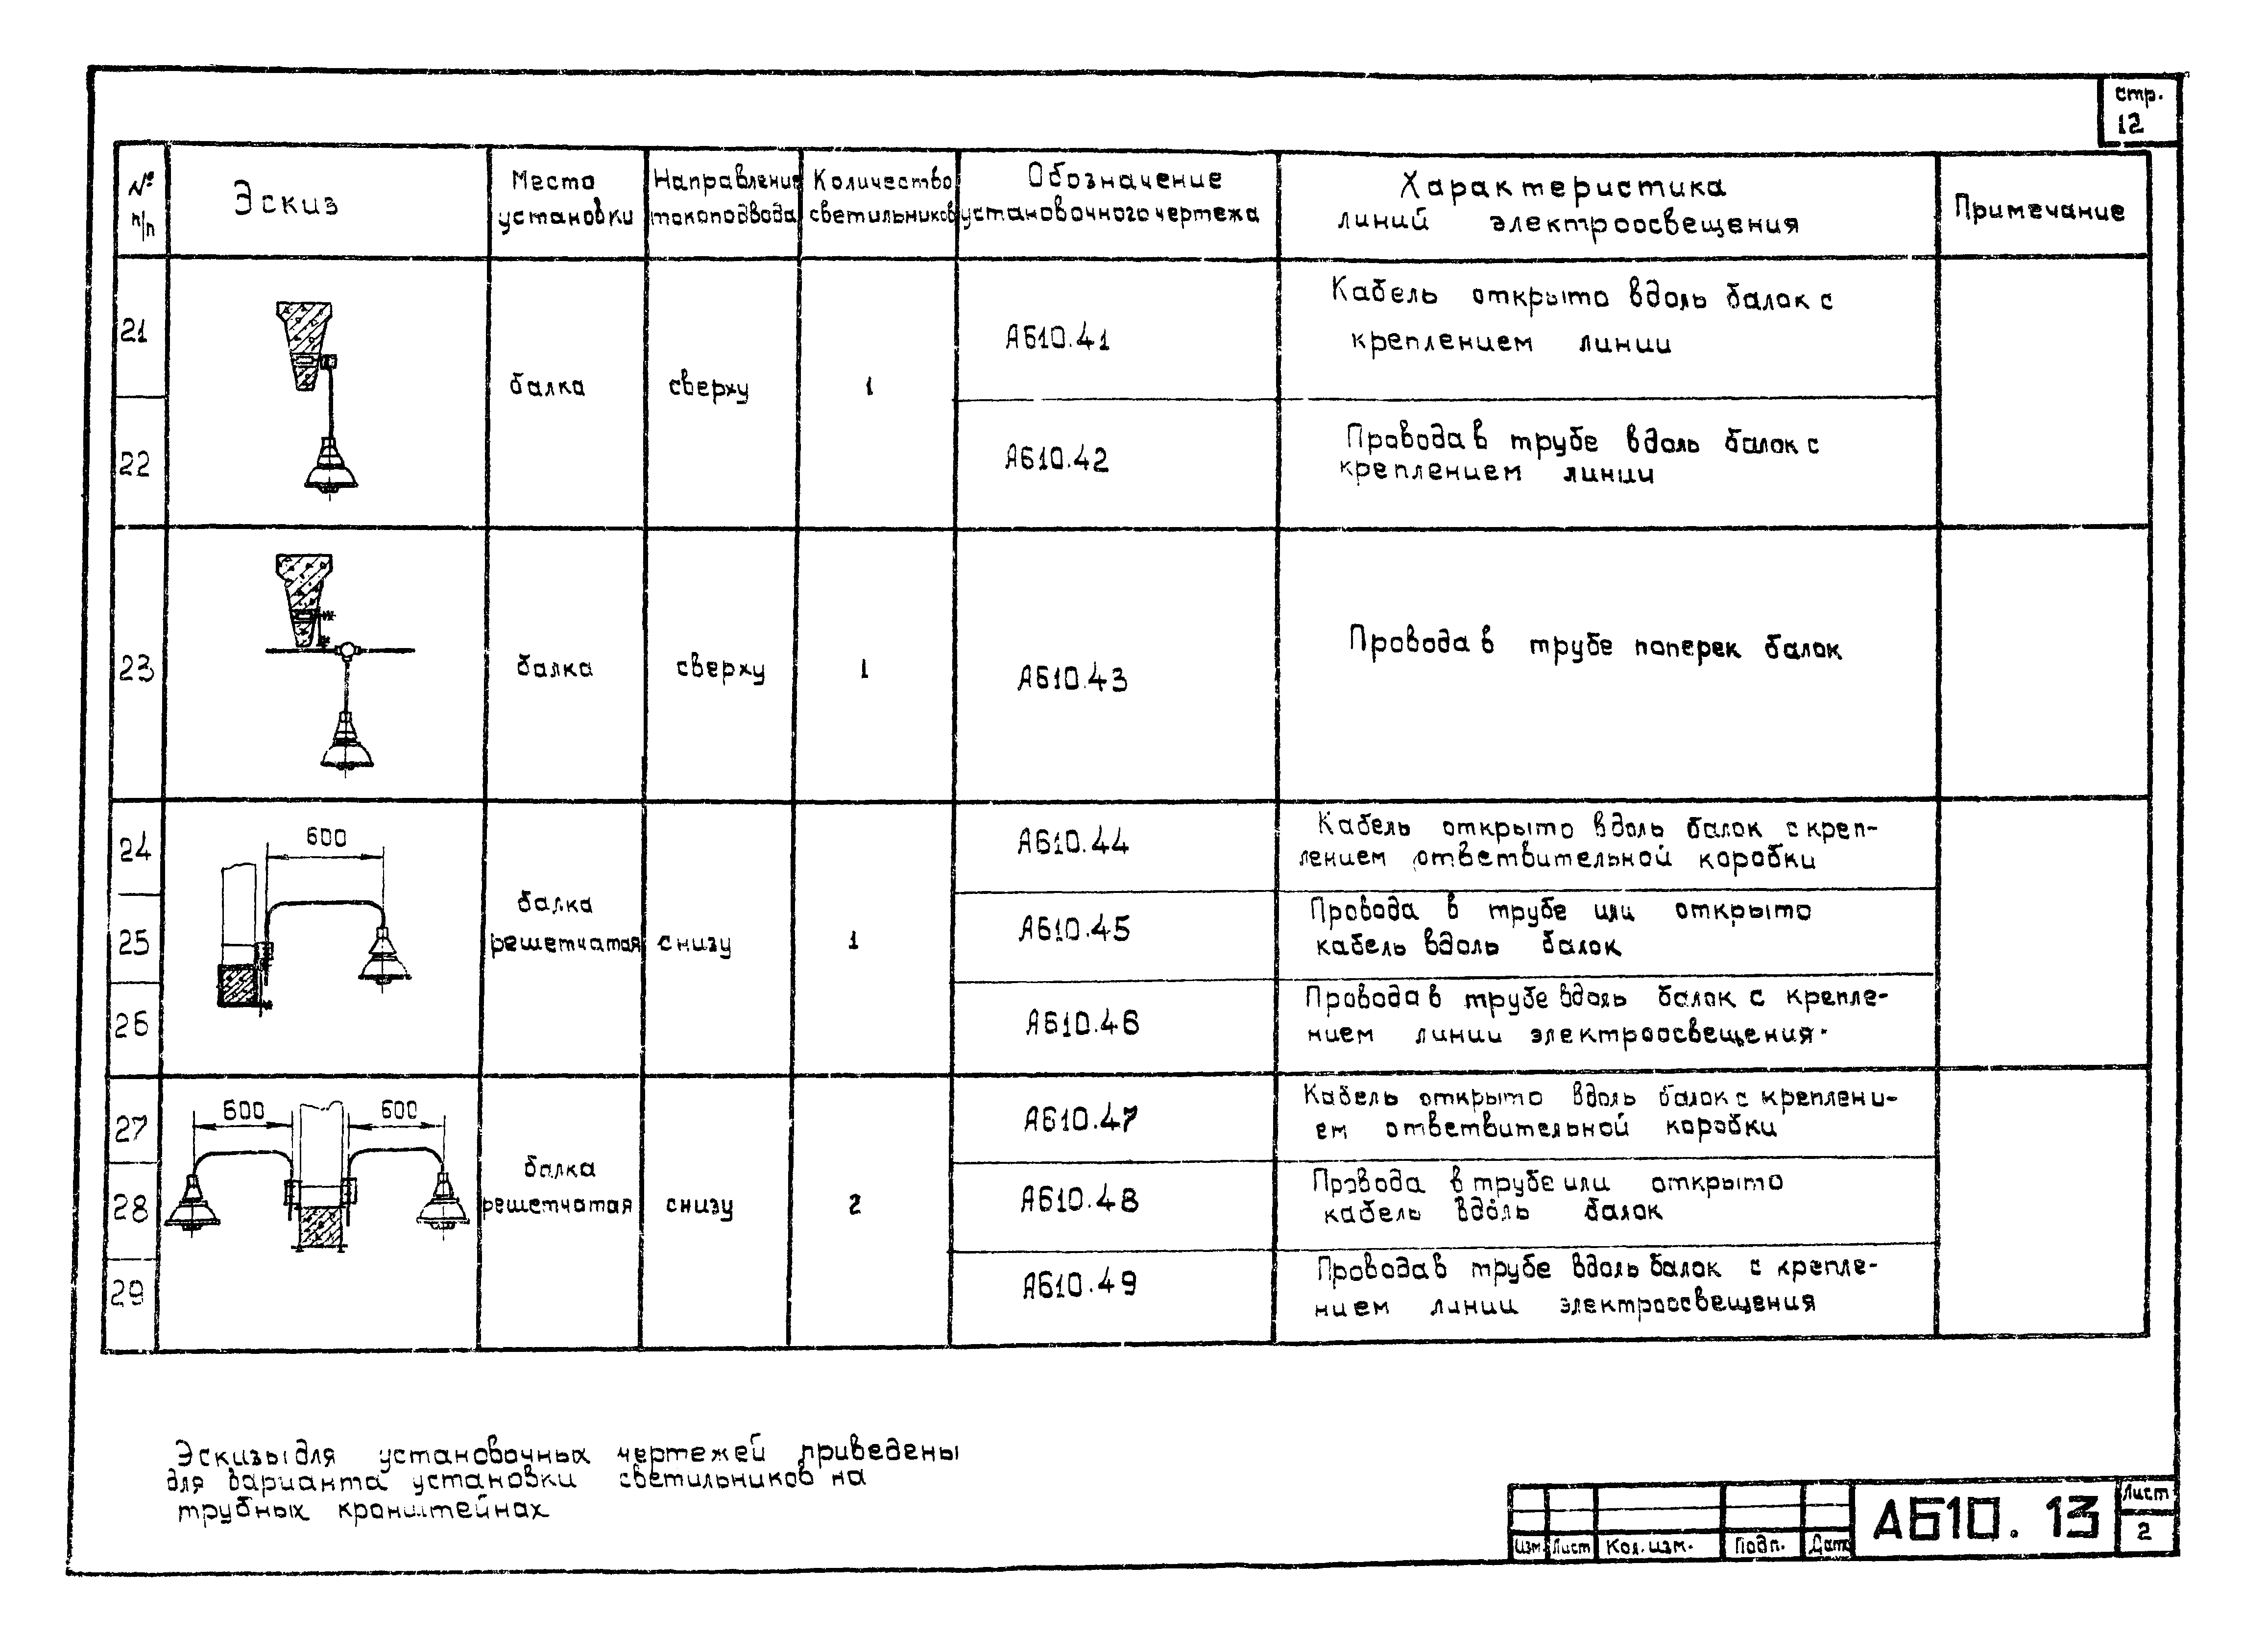 стр.
12
№ п/п
Эскиз
Место установки
Направление токоподвода
Количество светильников
Обозначение установочного чертежа
Характеристика линий электроосвещения
Примечание
21
балка
сверху
1
А610.41
Кабель открыто вдоль балок с
креплением линии
22
А610.42
Провода в трубе вдоль балок с
креплением линии
23
балка
сверху
1
А610.43
Провода в трубе поперек балок
24
600
балка
решетчатая
снизу
1
А610.44
Кабель открыто вдоль балок с креп-
лением ответвительной коробки
25
А610.45
Провода в трубе или открыто
кабель вдоль балок
26
А610.46
Провода в трубе вдоль балок с крепле-
нием линии электроосвещения.
27
600 600
балка
решетчатая
снизу
2
А610.47
Кабель открыто вдоль балок с креплени-
ем ответвительной коробки
28
А610.48
Провода в трубе или открыто
кабель вдоль балок
29
А610.49
Провода в трубе вдоль балок с крепле-
нием линии электроосвещения
Эскизы для установочных чертежей приведены
для варианта установки светильников на
трубных кронштейнах
Изм. Лист Кол. изм. Подп. Дата
А610.13
Лист
2